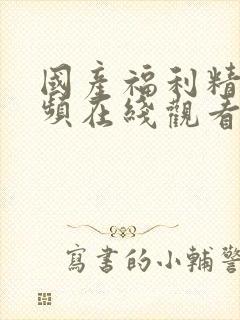 國產福利精
頻在綫觀看
寫書的小輔警